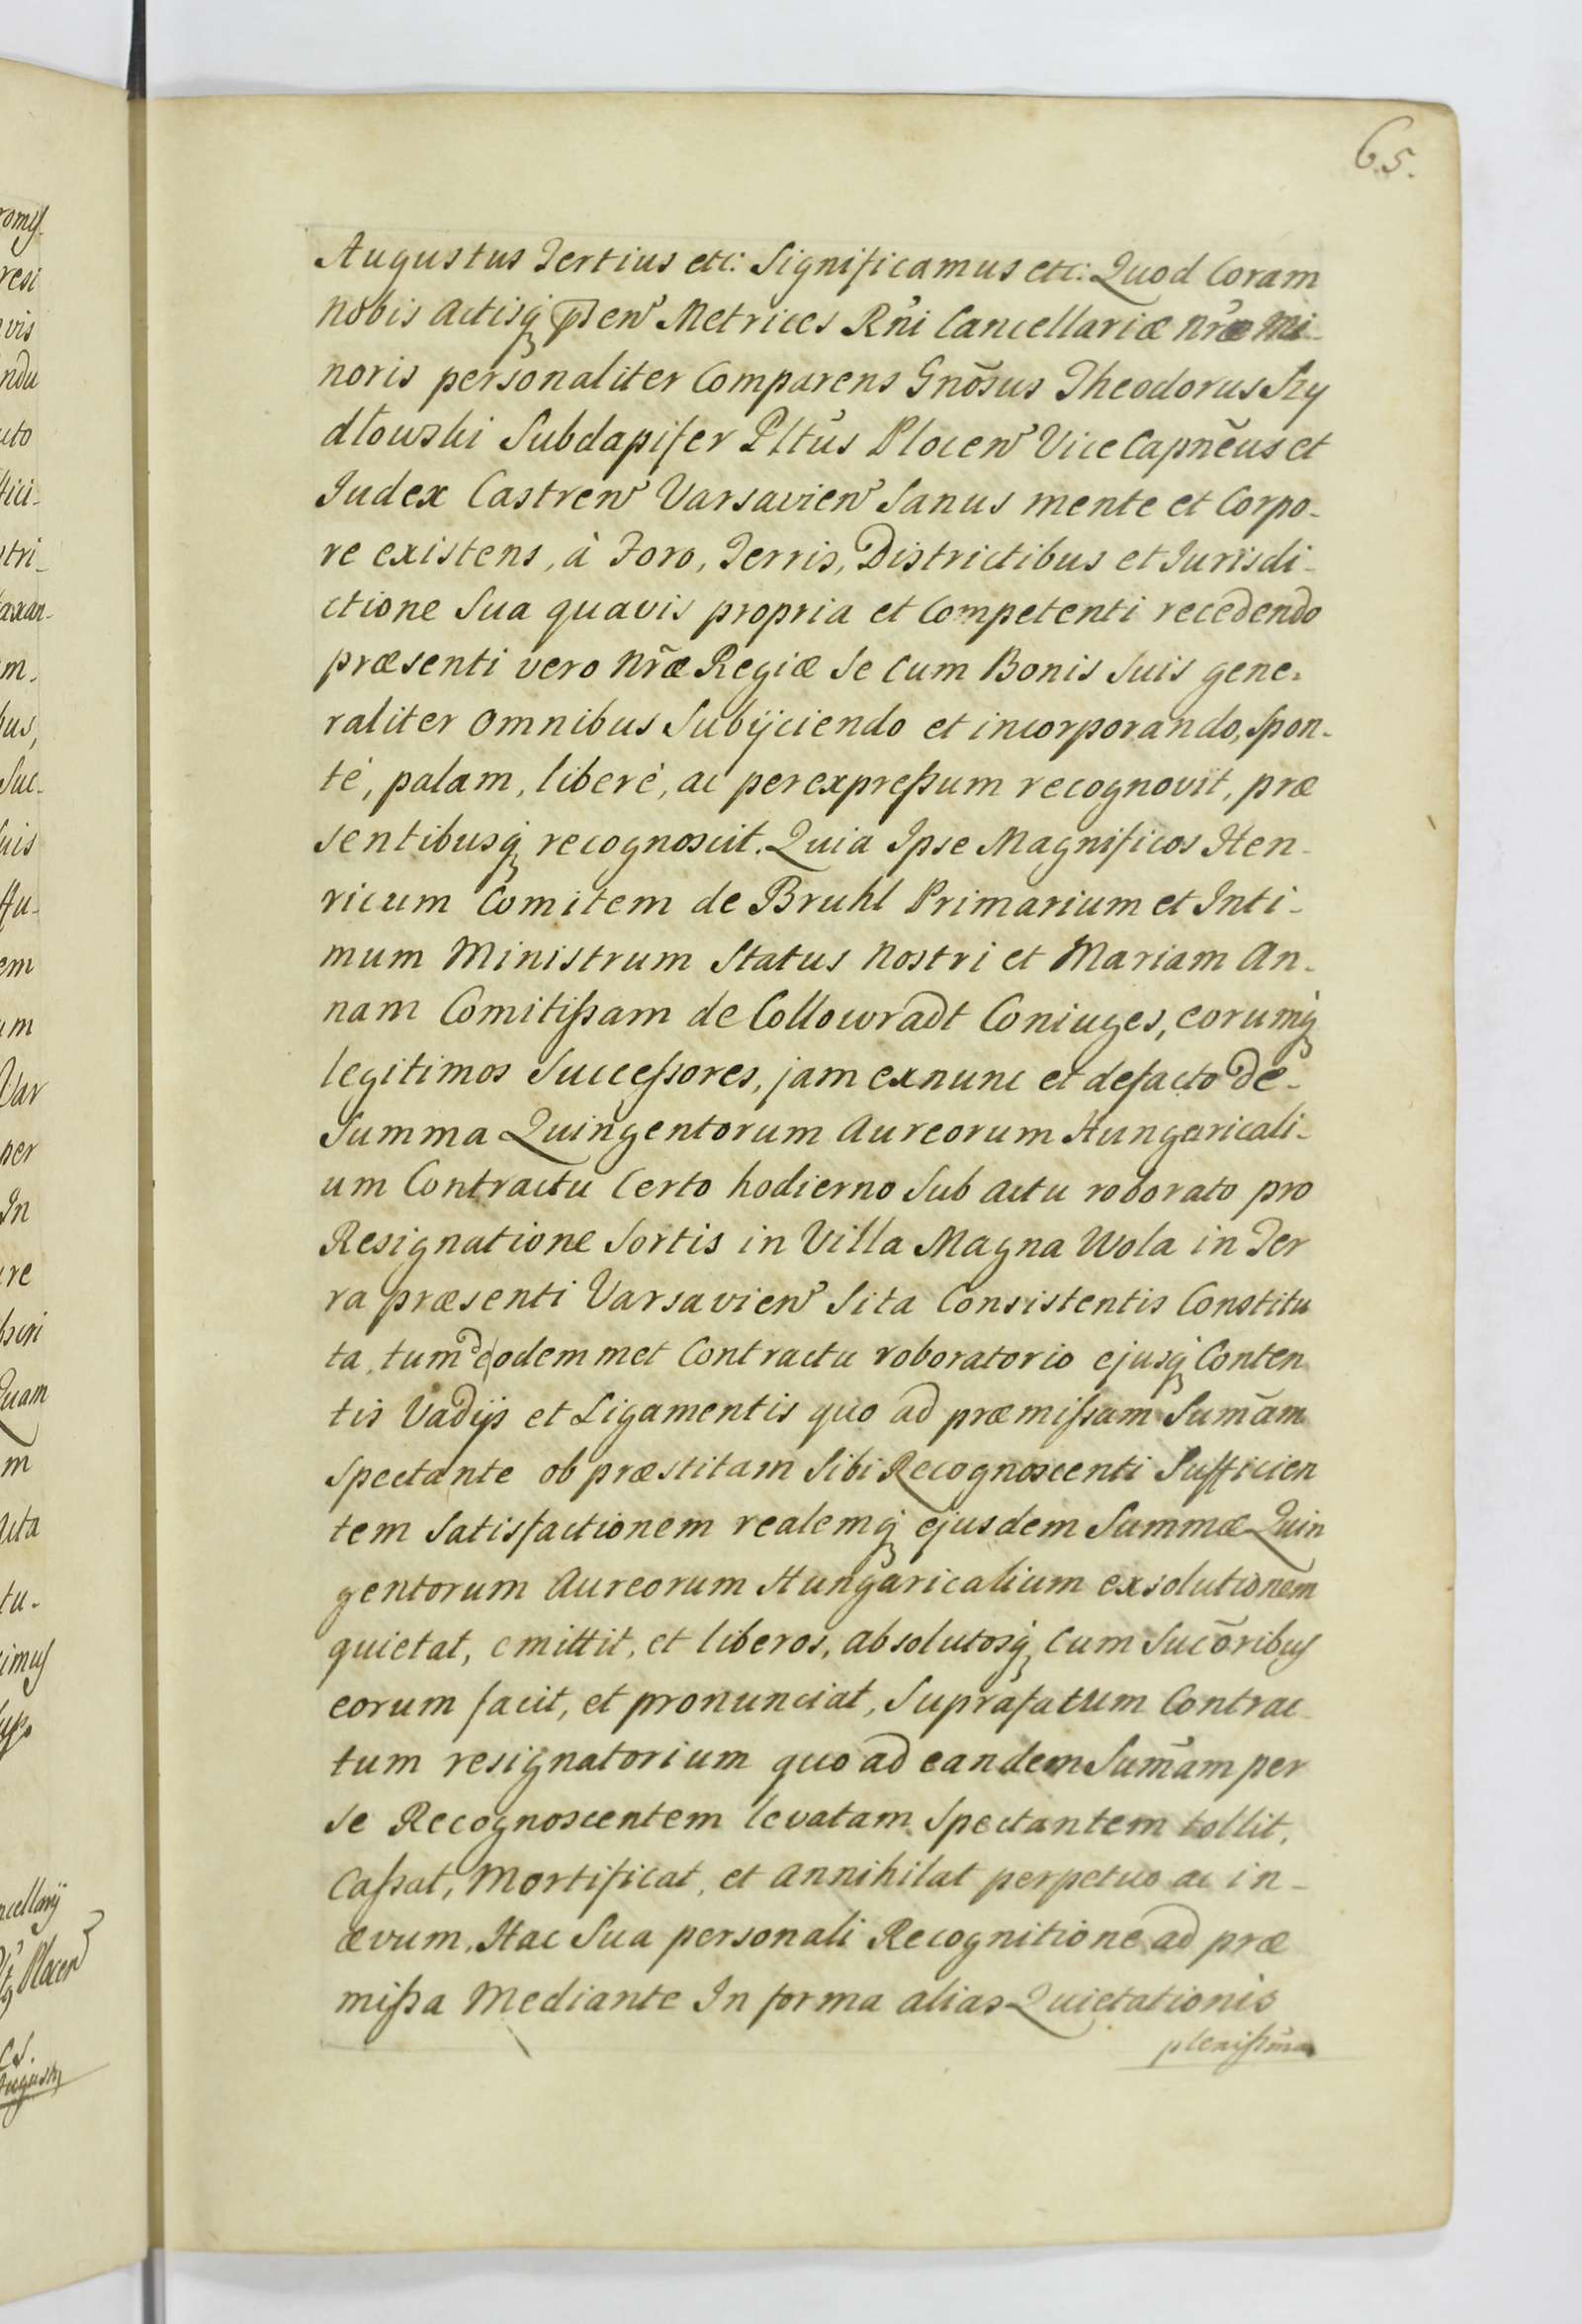 65.
Augustus Tertius etc: Significamus etc: Quod Coram
Nobis Actisq́ Metrices Rñi Cancellariæ Nr̃æ Mi-
noris personaliter Comparens Gnõsus Theodorus Szy
dłowski Subdapifer Pltũs Plocen̄ Vice Capnẽus et
Iudex Castren̄ Varsavien̄ Sanus mente et Corpo-
re existens, à Foro, Terris, Districtibus et Iurisdi-
ctione Sua quavis propria et Competenti recedendo
præsenti vero Nr̃æ Regiæ Se Cum Bonis Suis gene-
raliter Omnibus Subijciendo et incorporando, Spon-
tè, palam, liberè, ac per expreßum recognovit, præ
sentibusq́ recognoscit. Quia Ipse Magnificos Hen-
ricum Comitem de Bruhl Primarium et Inti-
mum Ministrum Status Nostri et Mariam An-
nam Comitißam de Collowradt Coniuges, eorumq́
legitimos Succeßores, jam exnunc et defacto de-
Summa Quingentorum Aureorum Hungaricali-
um Contractu Certo hodierno Sub Actu roborato pro
Resignatione Sortis in Villa Magna Wola in Ter
ra præsenti Varsavien̄ Sita Consistentis Constitu
ta, tum de eodemmet Contractu roboratorio ejusq́ Conten
tis Vadijs et Ligamentis quo ad præmißam Sumãm
Spectante ob præstitam Sibi Recognoscenti Sufficien
tem Satisfactionem realemq́ ejusdem Summæ Quin
gentorum Aureorum Hungaricalium exsolutionem
quietat, emittit, et liberos, absolutosq́ Cum Sucõribus
eorum facit, et pronunciat, Suprafatum Contrac-
tum resignatorium quo ad eandem Sumãm per
Se Recognoscentem levatam Spectantem tollit,
Caßat, Mortificat, et Annihilat perpetuo ac in-
ævum, Hac Sua personali Recognitione ad præ
mißa Mediante In forma alias Quietationis
plenißima